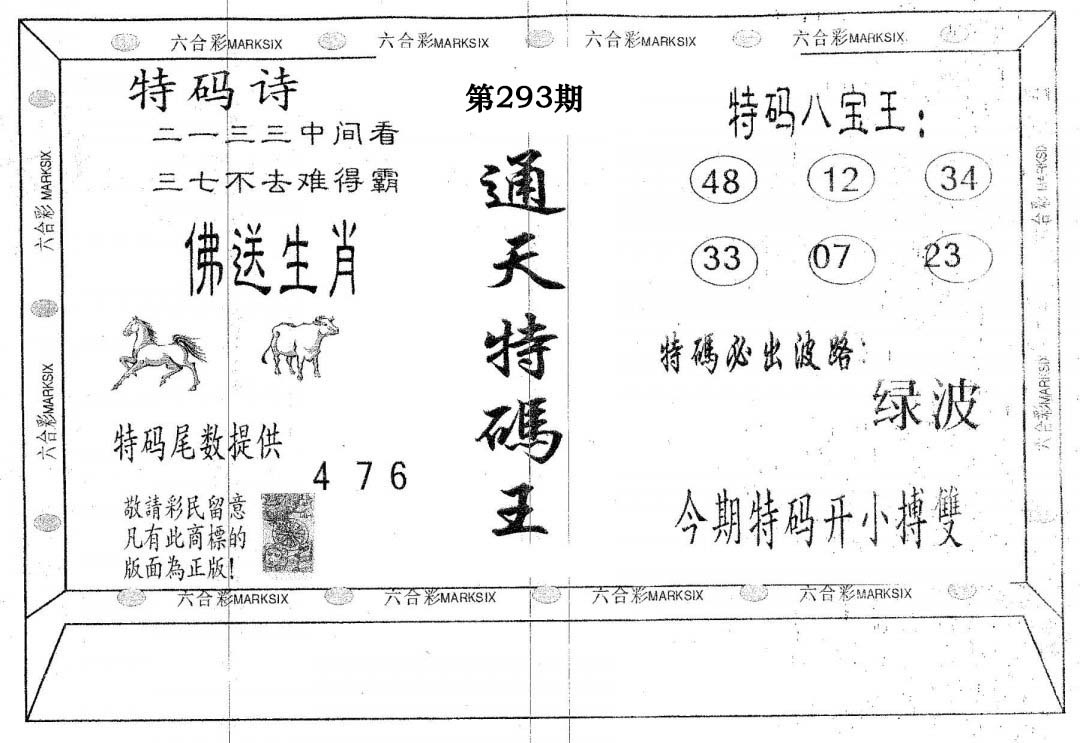 六合彩MARKSIX 六合彩MARKSIX 六合彩MARKSIX 六合彩MARKSIX
特码诗
二一三三中间看
三七不去难得霸
佛送生肖
特码尾数提供
4 7 6
敬請彩民留意
凡有此商標的
版面為正版!
第293期
通天特碼王
特码八宝王:
48 12 34
33 07 23
特碼必出波路:
绿波
今期特码开小搏雙
六合彩MARKSIX
六合彩MARKSIX
六合彩MARKSIX
六合彩MARKSIX
六合彩MARKSIX 六合彩MARKSIX 六合彩MARKSIX 六合彩MARKSIX